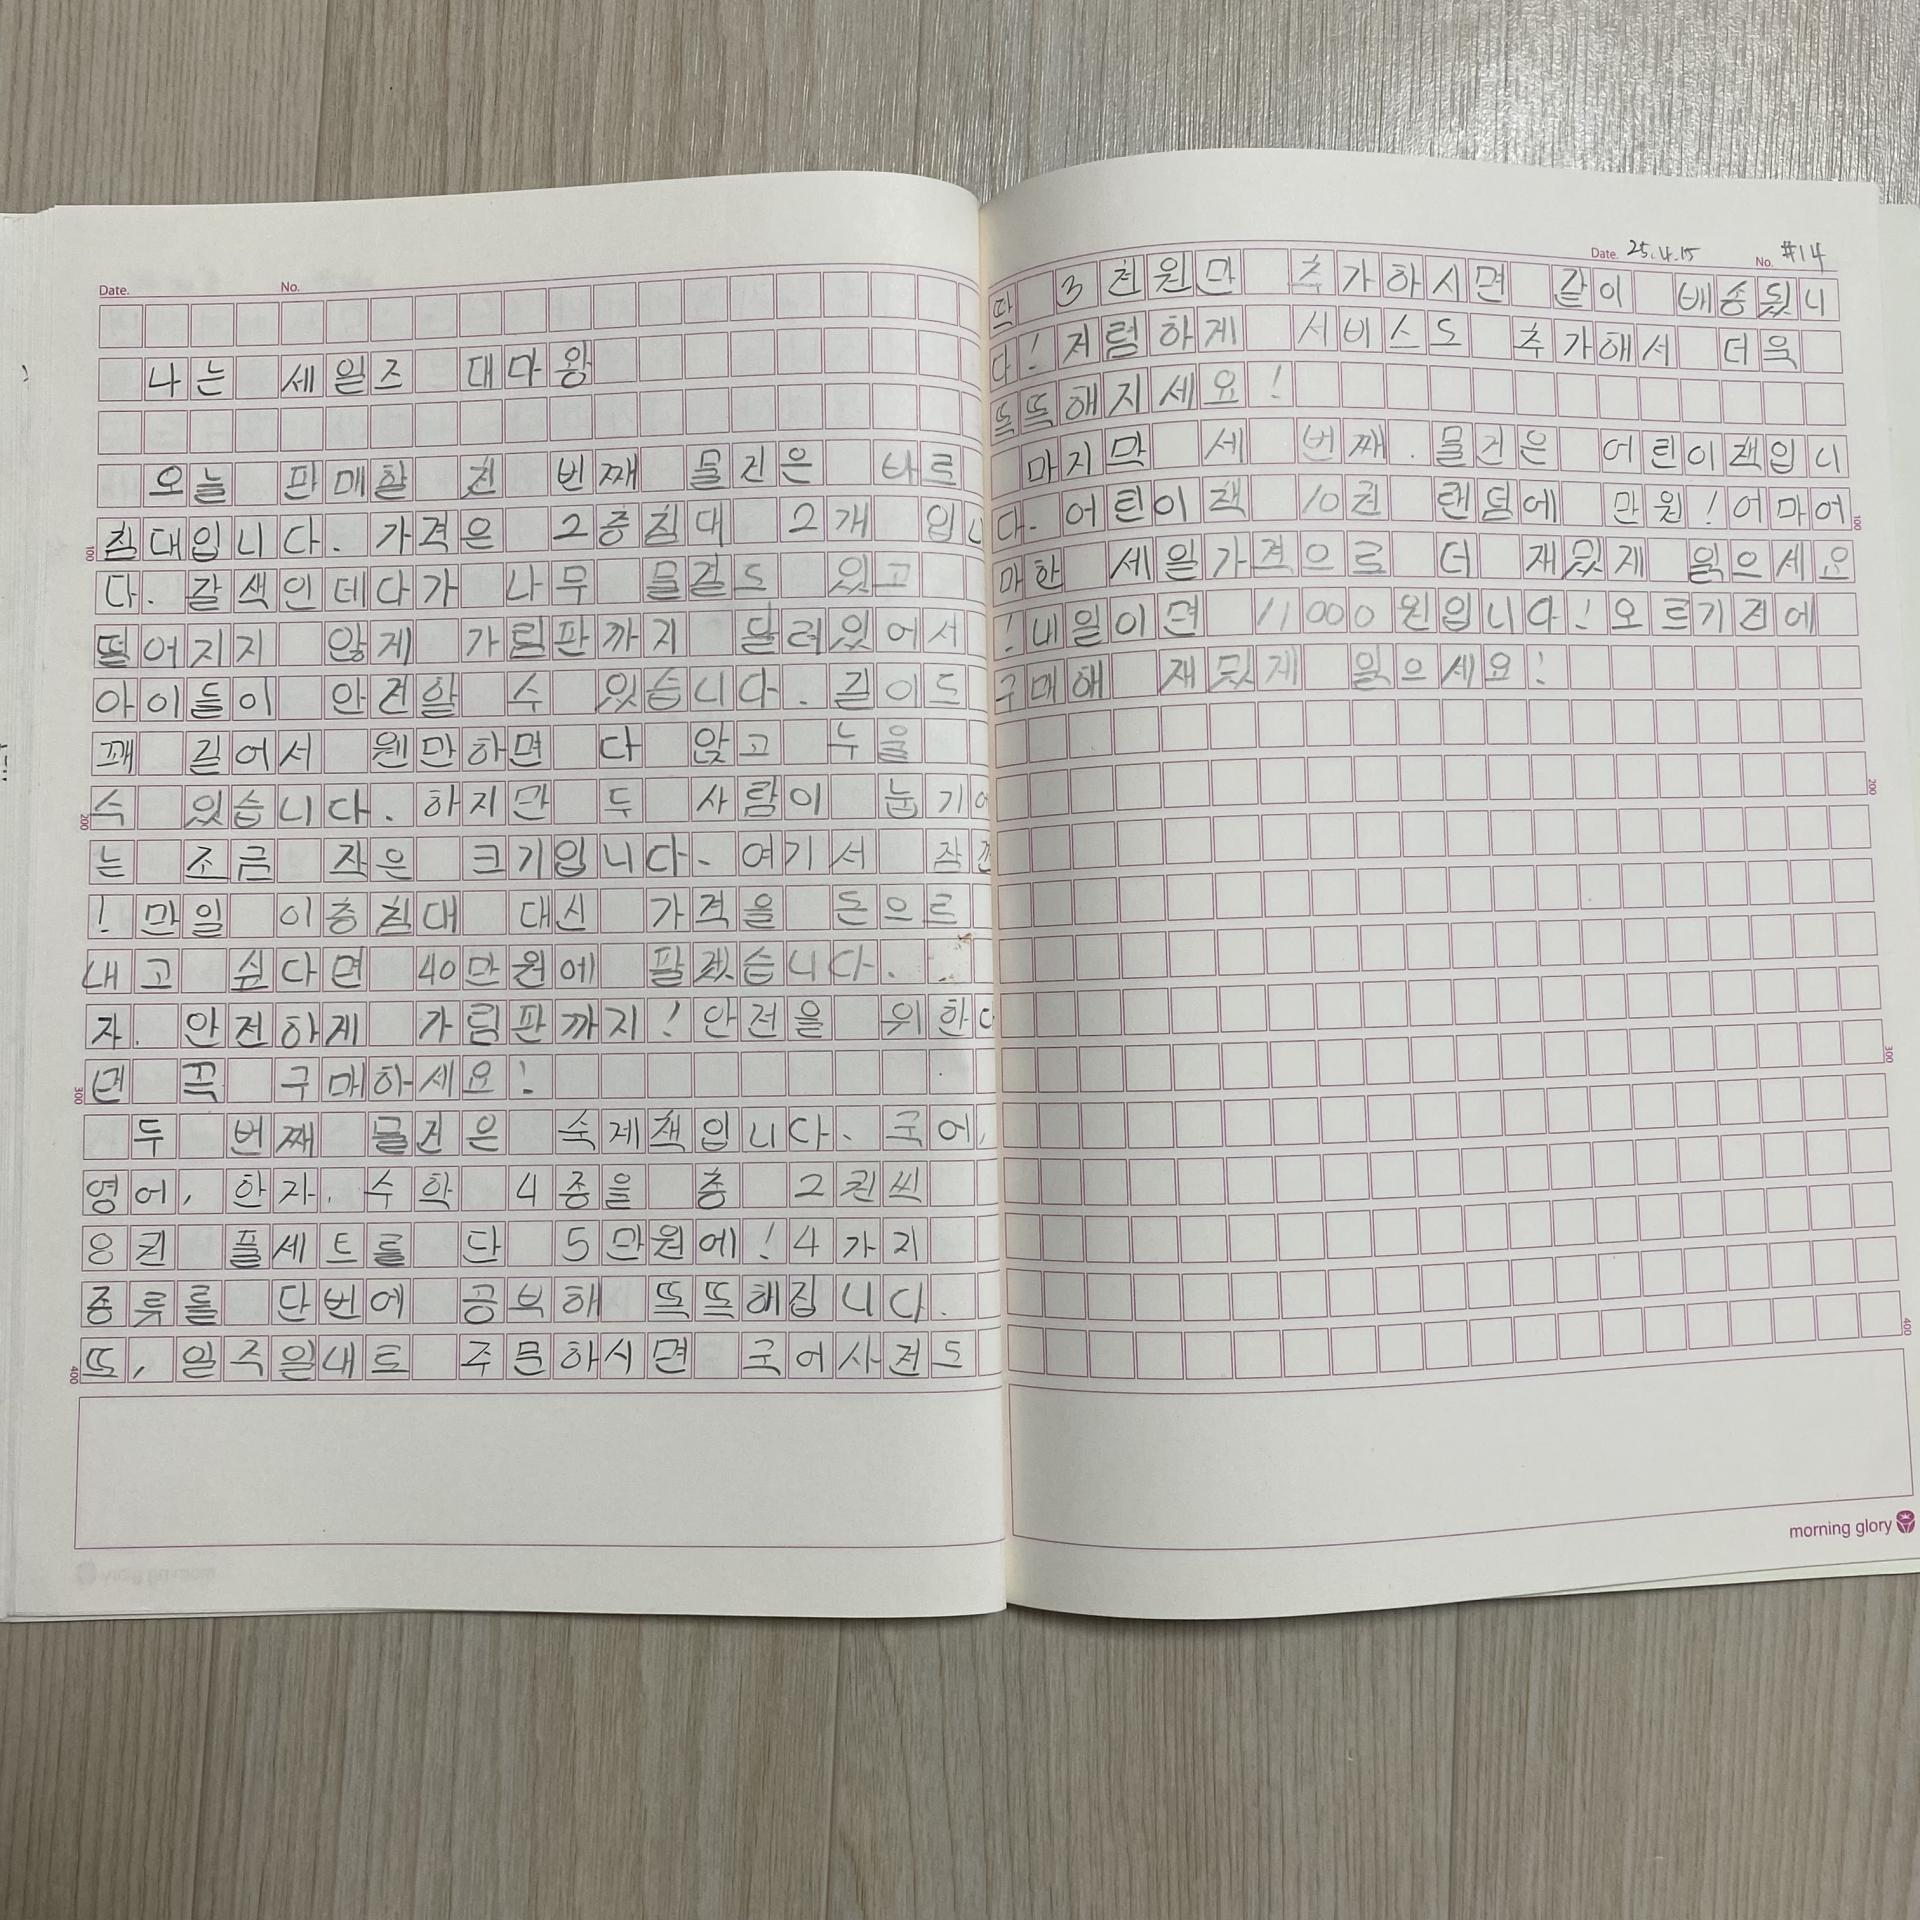 Date. No.
나는 세일즈 대마왕
오늘 판매할 첫 번째 물건은 바로
침대입니다. 가격은 2층침대 2개 입니
다. 갈색인데다가 나무 물결도 있고
떨어지지 않게 가림판까지 달려있어서
아이들이 안전할 수 있습니다. 길이도
꽤 길어서 웬만하면 다 앉고 누울
수 있습니다. 하지만 두 사람이 눕기에
는 조금 작은 크기입니다. 여기서 잠깐
! 만일 이층침대 대신 가격을 돈으로
내고 싶다면 40만원에 팔겠습니다.
자. 안전하게 가림판까지! 안전을 위한다
면 꼭 구매하세요!
두 번째 물건은 숙제책입니다. 국어,
영어, 한자, 수학 4종을 총 2권씩
8권 풀세트를 단 5만원에! 4가지
종류를 단번에 공부해 똑똑해집니다.
또, 일주일내로 주문하시면 국어사전도
100
200
300
400
Date. 25.4.15 No. #14
딱 3천원만 추가하시면 같이 배송됩니
다! 저렴하게 서비스도 추가해서 더욱
똑똑해지세요!
마지막 세 번째. 물건은 어린이책입니
다. 어린이책 10권 랜덤에 만원! 어마어
마한 세일가격으로 더 재밌게 읽으세요
! 내일이면 11000원입니다! 오르기전에
구매해 재밌게 읽으세요!
100
200
300
400
morning glory